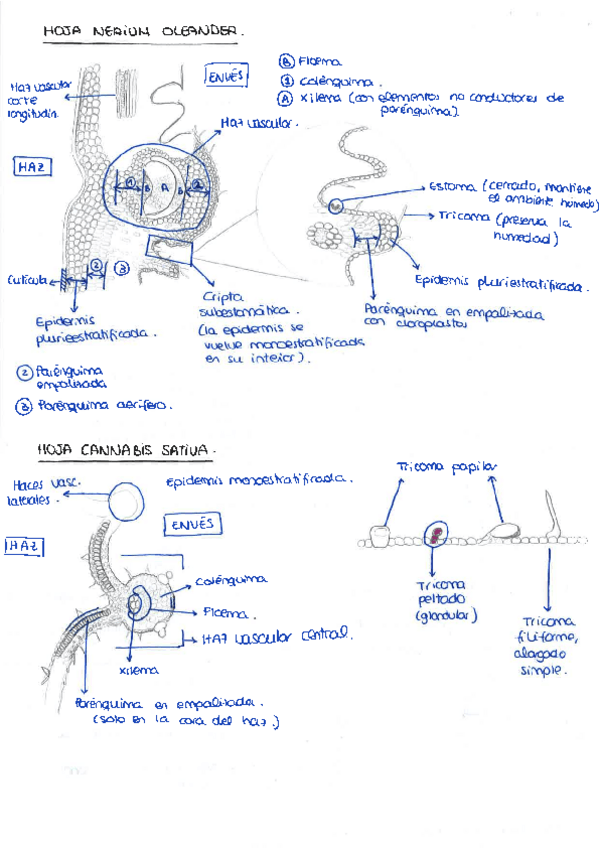 HOJA NERIUM OLEANDER.
Haz vascular
corte
longitudin.
ENVÉS
B Floema
1 Colénquima.
A Xilema (con elementos no conductores de
parénquima).
Haz vascular.
HAZ
1 B A B 2
Estoma (cerrado, mantiene
el ambiente húmedo)
Tricoma (preserva la
humedad)
Cutícula
2 3
Epidermis pluriestratificada.
Parénquima en empalizada
con cloroplastos
Cripta
subestomática.
(la epidermis se
vuelve monoestratificada
en su interior).
Epidermis
plurieestratificada.
2 Parénquima
empalizada
3 Parénquima aerífero.
HOJA CANNABIS SATIVA.
Haces vasc.
laterales.
Epidermis monoestratificada.
Tricoma papilar
ENVÉS
HAZ
Colénquima
Floema.
Haz vascular central.
Xilema
Parénquima en empalizada.
(solo en la cara del haz.)
Tricoma
peltado
(glandular)
Tricoma
filiforme,
alagado
simple.